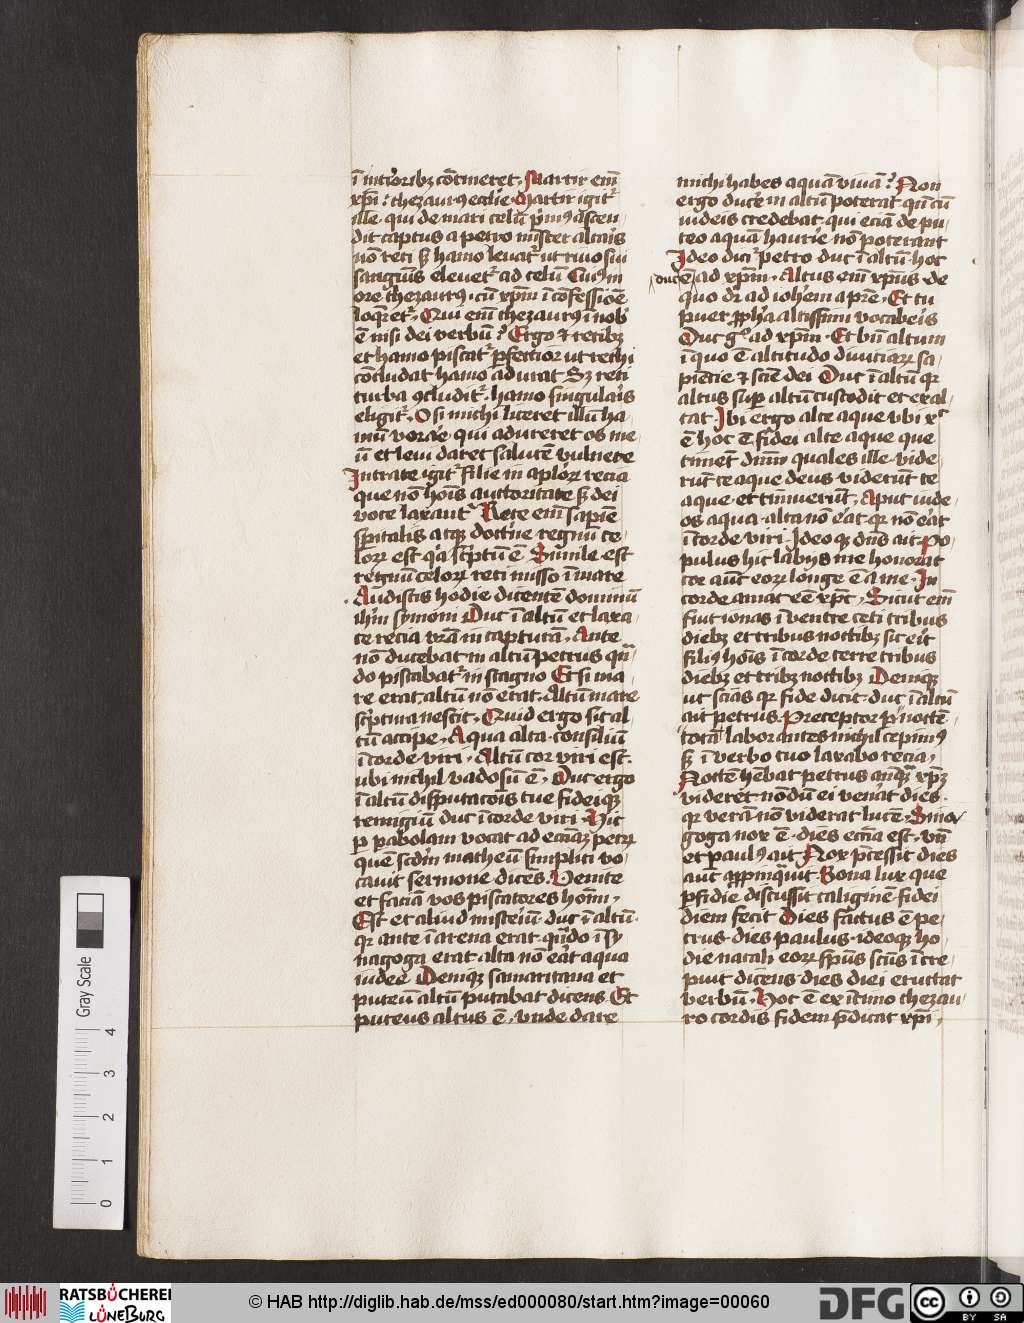 ī int͛ioribꝫ cōtineret. Martir em̄
xp̄i ? thezaurꝰ ecclie. Martir igit᷑
ille. qui de mari celū p̄imꝰ ascen-
dit captus a petro mīster altaīs
nō reti sꝫ hamo leuat᷑ ut riuo sui
sanguīs eleuet᷑ ad celū Cuiꝰ in
ore thezaurꝰ. cū xp̄m ī cōfessiōe
loq̄ret᷑. Qui em̄ thezaurꝰ ī nob᷑
ē nisi dei verbū ? Ergo ⁊ retibꝫ
et hamo piscat᷑ ꝑfectior ut rethi
cōcludat hamo adurat Sꝫ reti
turba ꝯcludit᷑. hamo singulaīs
eligit᷑. O si michi liceret illū ha-
mū vorare qui adureret os me-
ū et leui daret salutē vulnere
Intrate igit᷑ filie in aplor̄ recia
que nō hoīs auctoritate sꝫ dei
voce laxant᷑ Rete em̄ sapīe
spiritalis atqꝫ doctīe regnū ce-
lorꝝ est. q̄a sc̄ptū ē Simile est
regnū celorꝝ reti misso ī mare
Audistis hodie dicentē dominū
ihm̄ symoni Duc ī altū et laxa-
te recia vr̄am in capturā. Ante
nō ducebat in altū petrus qn̄-
do piscabat᷑ in stagno Et si ma-
re erat altū nō erat. Altū mare
sc̄ptura nescit. Quid ergo sit al-
tū accipe. Aqua alta consiliū
ī corde viri. Altū cor viri est.
ubi nichil vadosū ē. Duc ergo
ī altū disputacōis tue fideiqꝫ
remigiū duc ī corde viri. Hic
ꝑ ꝑabolam vocat ad eccīaꝫ petrꝝ
quē scdm̄ matheū simplici vo-
cauit sermone dicēs. Venite
et faciā vos piscatores hoīm.
Est et aliud misteīū. duc ī altū.
qꝛ ante ī arena erat. qn̄do ī sy-
nagoga erat alta nō eāt aqua
iudee Deniqꝫ samaritana et
puteū altū putabat dicens. Et
puteus altus ē. unde dare
michi habes aquā viuā ? Non
ergo duce in altū poterat qn̄ cū
uideis credebat. qui eciā de pu-
teo aquā haurie nō poterant
Ideo dicit᷑ petro duc ī altū. hoc
ē ad xp̄m. Altus em̄ xp̄us. de
duc
quo dr̄ ad ioh̄em a pr̄e. Et tu
puer ꝓph̄a altissimi vocabeīs
Duc gͦ ad xp̄m. Et bn̄ altum
ī quo ē altitudo diuiciarꝝ sa-
piētie ⁊ sciē dei Duc ī altū qꝛ
altus suꝑ altū custodit et exal-
tat. Ibi ergo alte aque vbi xͬ
ē hoc ē fidei alte aque que
timēt dn̄m quales ille. vide-
rūt te aque deus viderūt te
aque. et timuerūt. Aput iude-
os aqua. alta nō eāt qꝛ nō eāt
ī corde viri. Ideoqꝫ dn̄s ait. Po-
pulus hic labijs me honorat
cor aut̄ eorꝝ longe ē a me. In
corde amat eē xp̄c. Sicut em̄
fiut ionas ī ventre ceti tribus
diebꝫ et tribus noctibꝫ sic eit
filiꝰ hoīs ī corde terre tribus
diebꝫ et tribꝫ noctibꝫ Deniqꝫ
ut scias qꝛ fide dicit. duc ī altū
ait petrus. Preceptor ꝑ noctē
totā laborantes nichil cepimꝰ
sꝫ ī verbo tuo laxabo recia.
Noctē hēbat petrus anqꝫ xp̄ꝫ
videret. nōdū ei venat dies.
qꝛ verā nō viderat lucē. Sina-
goga nox ē. dies eccīa est. vn̄
et paulꝰ ait Nox p̄cessit dies
aut̄ aꝓpinq̄uit. Bona lux que
ꝑfidie discussit caliginē fidei
diem fecit Dies factus ē pe-
trus. dies paulus. ideoqꝫ ho-
die natali eorꝝ spūs scūs ī cre-
puit dicēns. dies diei eructat
verbū. Hoc ē ex ītimo thezau-
ro cordis fidem p̄dicat xp̄i.
Gray Scale
0 1 2 3 4
RATSBÜCHEREI
LÜNEBURG
© HAB http://diglib.hab.de/mss/ed000080/start.htm?image=00060
DFG
cc
BY SA